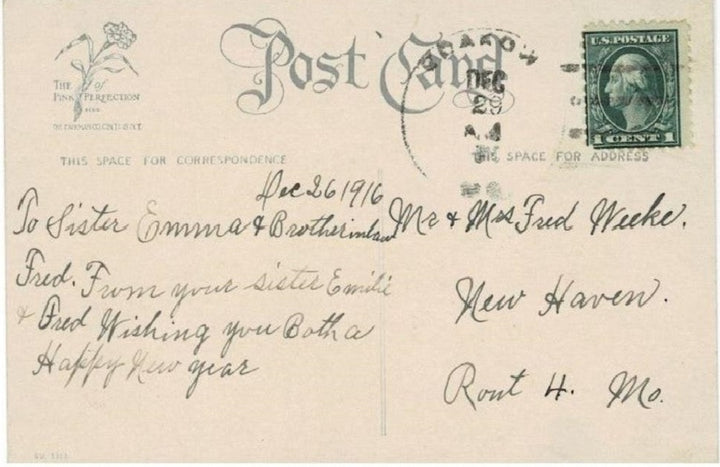 Post Card
U.S. POSTAGE
1 CENT 1
DEC
29
THE PINK of PERFECTION
THIS SPACE FOR CORRESPONDENCE
THIS SPACE FOR ADDRESS
Dec 26 1916
To Sister Emma & Brotherinlaw
Fred. From your sister Emilie
& Fred Wishing you Both a
Happy New year
Mr & Mrs Fred Weeke.
New Haven.
Rout 4. Mo.